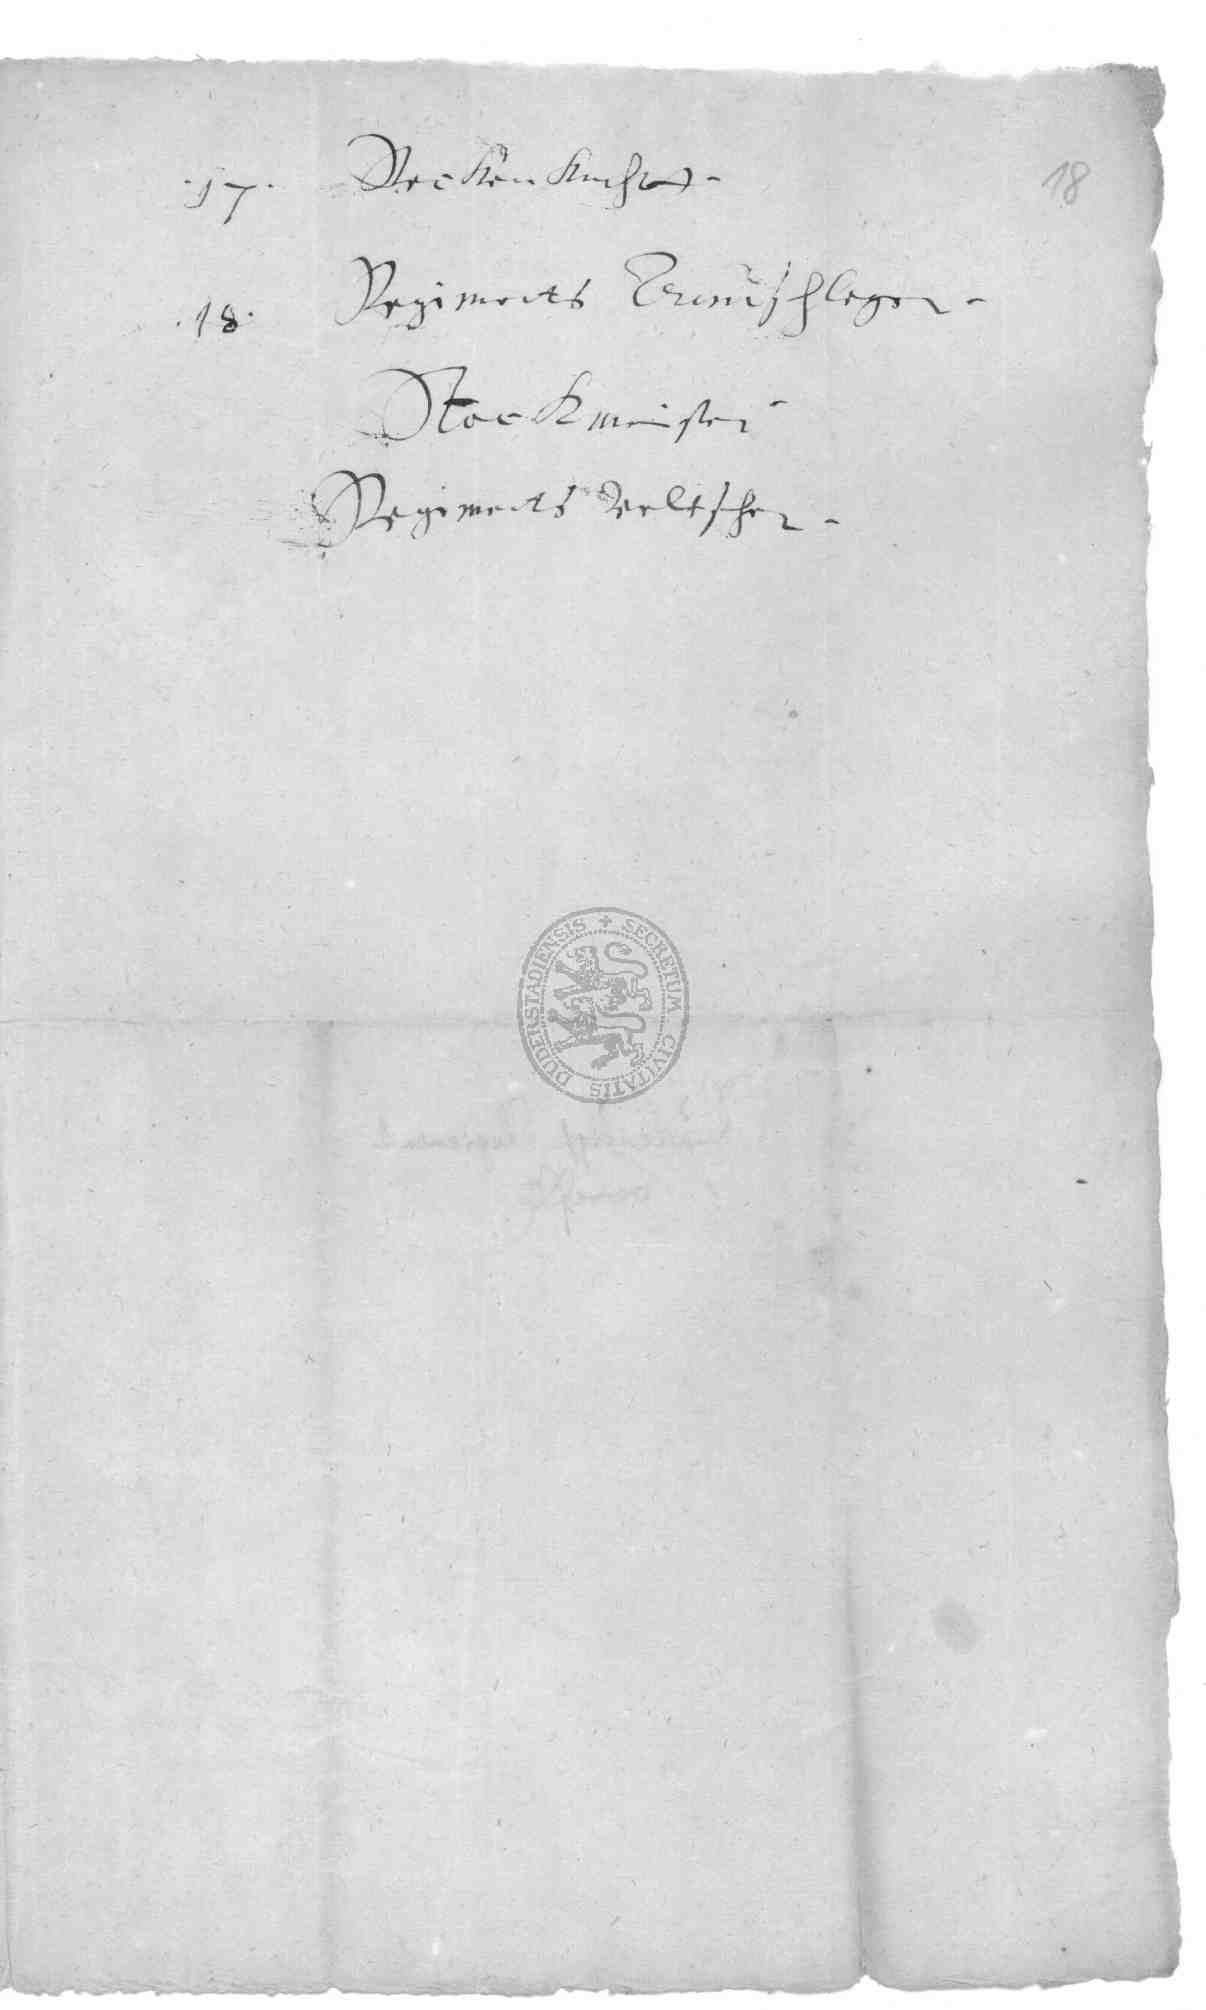 18
.17. Steckenknecht
.18. Regiments Trumschleger
Stockmeister
Regiments
SECRETUM CIVITATIS DUDERSTADIENSIS